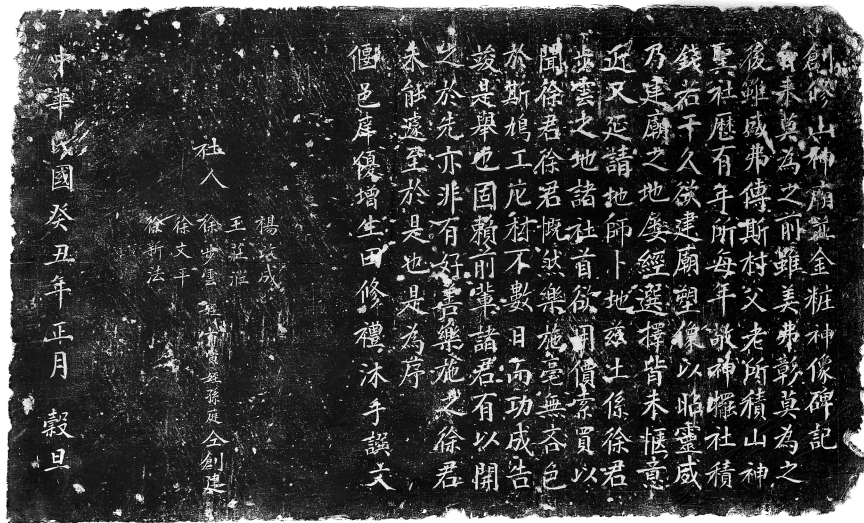 創修山神廟並金粧神像碑記
來莫為之前雖美弗彰莫為之
後雖盛弗傳斯村父老所積山神
聖社歷有年所每年敬神犒社積
錢若干久欲建廟塑像以昭靈威
乃建廟之地屢經選擇皆未愜意
近又延請地師卜地茲土係徐君
步雲之地諸社首欲用價索買以
聞徐君徐君慨然樂施毫無吝色
於斯鳩工庀材不數日而功成告
竣是舉也固賴前輩諸君有以開
之於先亦非有好善樂施之徐君
未能遽至於是也是為序
偃邑庠優增生田修禮沐手譔文
社人
楊 成
王莊
徐步雲 姪 孫 仝創建
徐文平
徐新法
中華民國癸丑年正月 穀旦